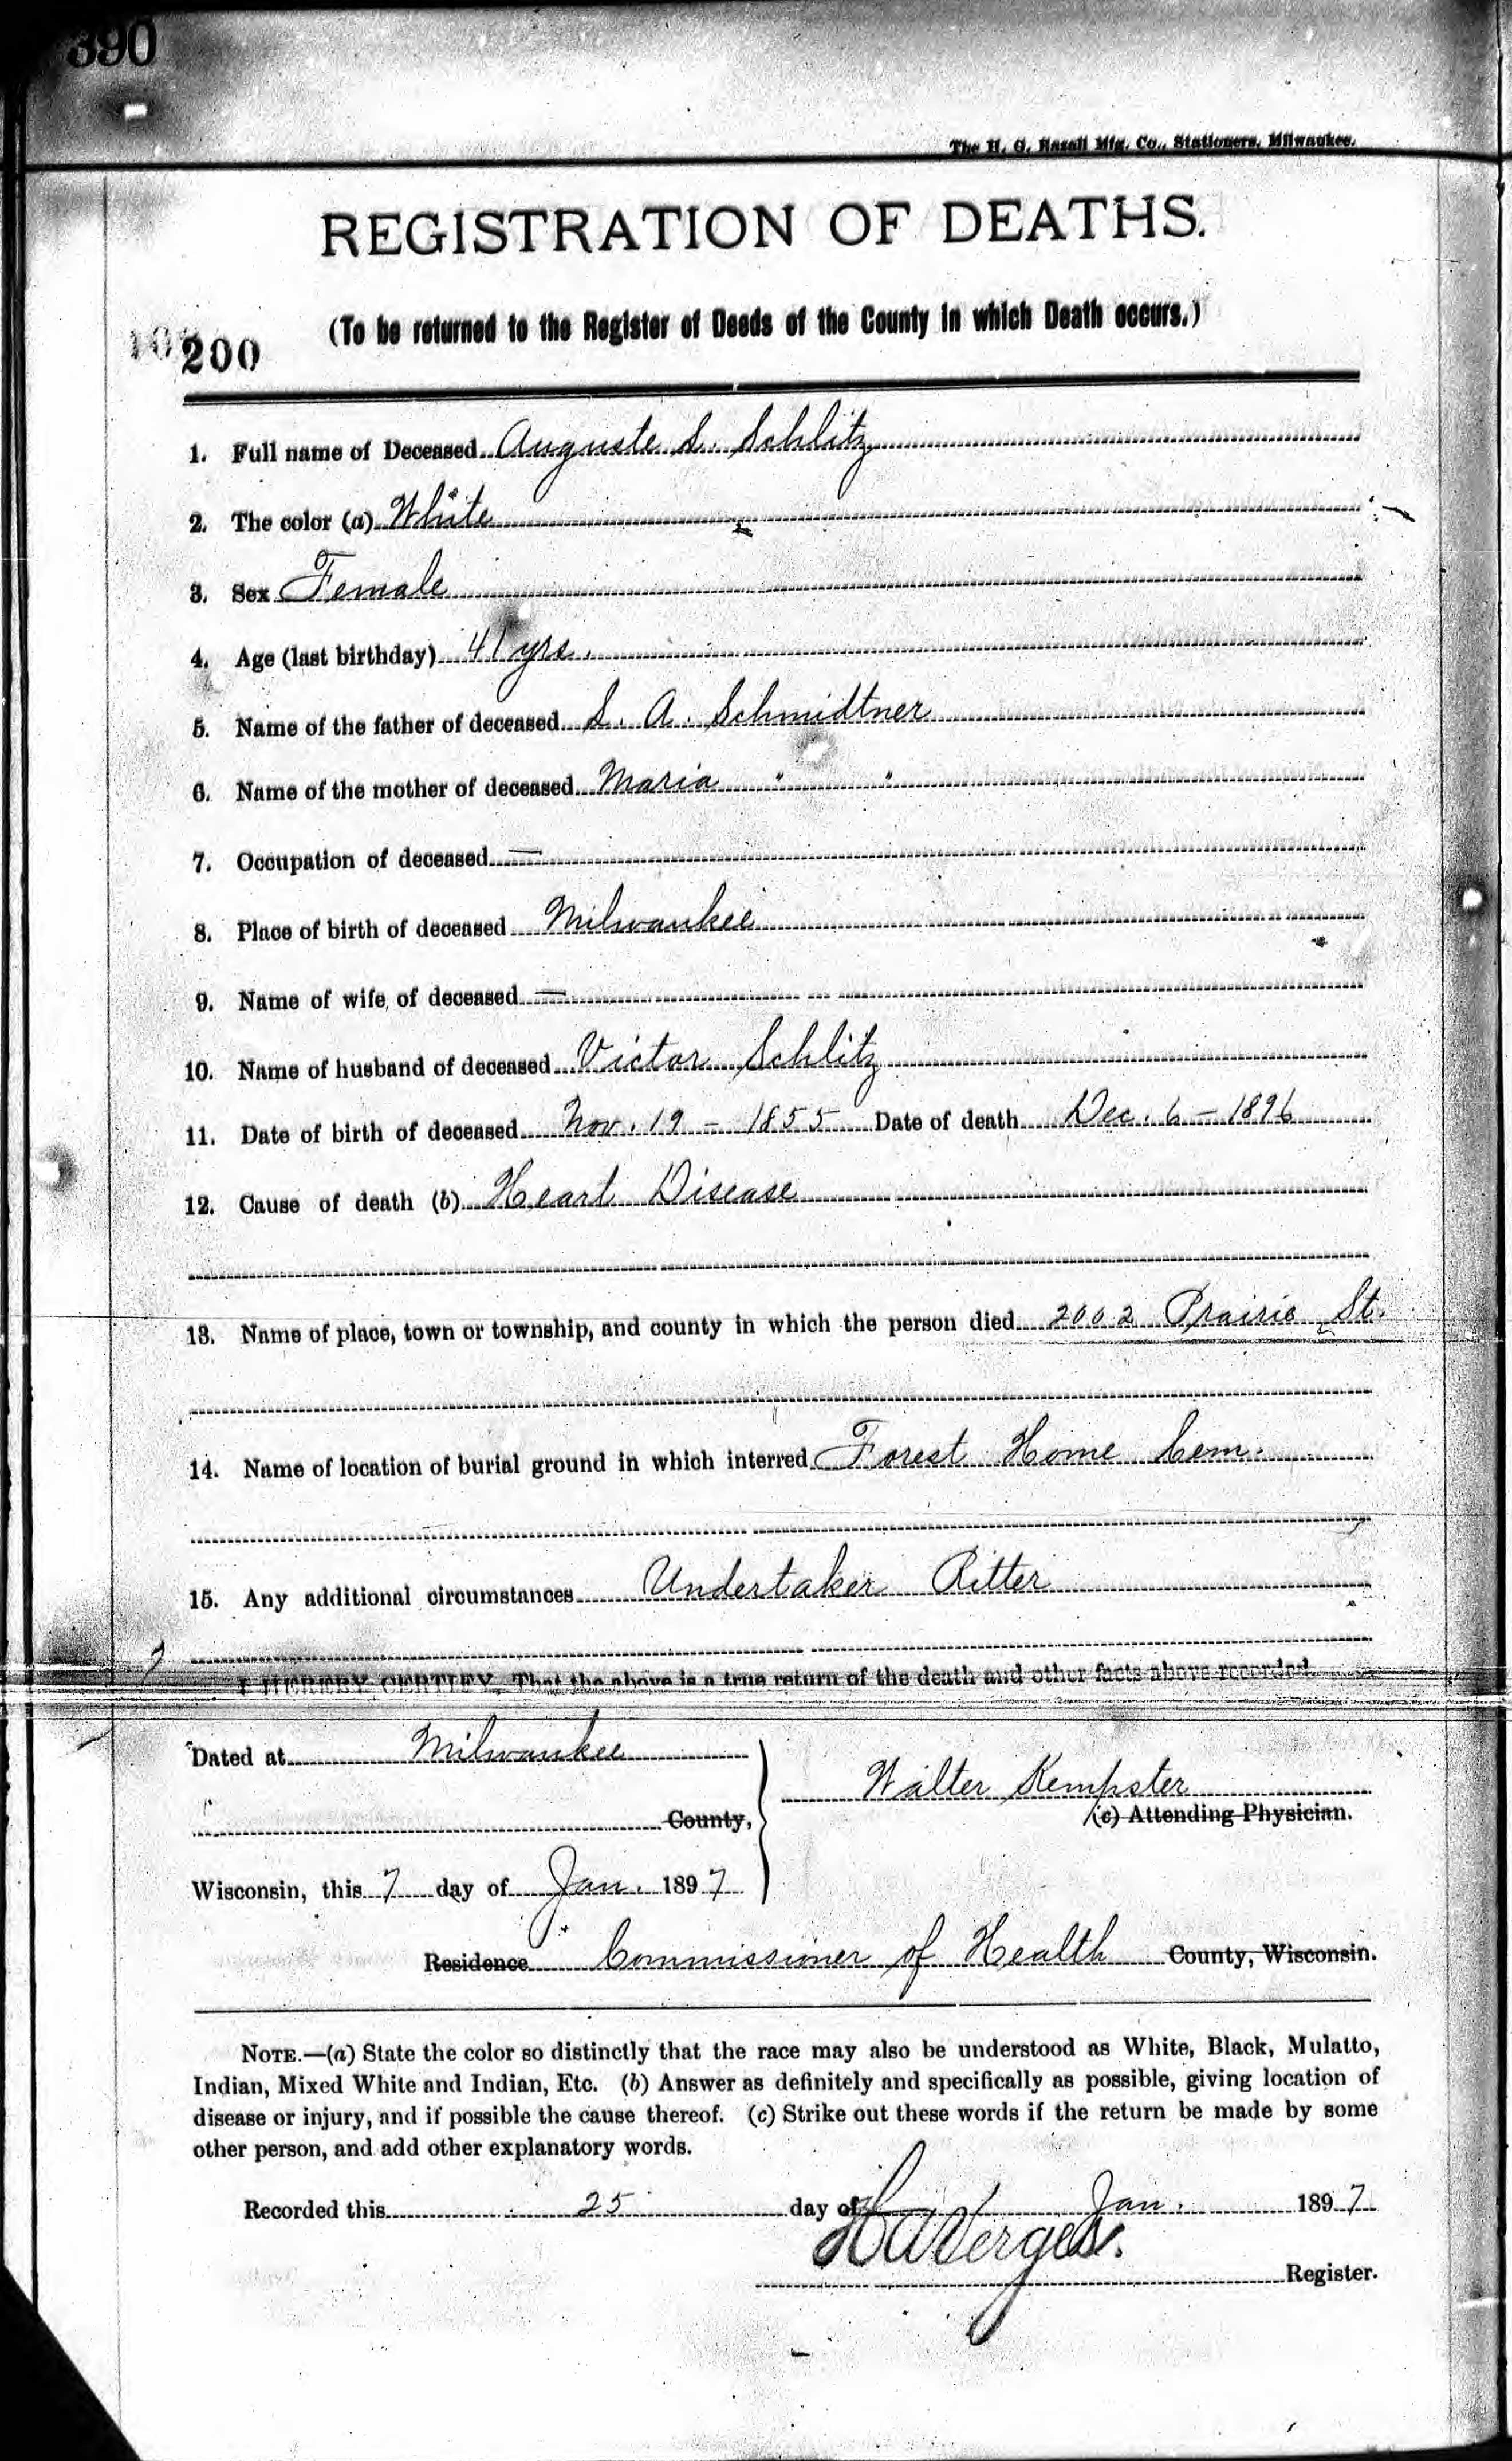 390
The H. G. Razall Mfg. Co., Stationers, Milwaukee.
REGISTRATION OF DEATHS.
(To be returned to the Register of Deeds of the County in which Death occurs.)
200
1. Full name of Deceased Auguste L. Schlitz
2. The color (a) White
3. Sex Female
4. Age (last birthday) 41 yrs.
5. Name of the father of deceased L. A. Schmidtner
6. Name of the mother of deceased Maria " "
7. Occupation of deceased —
8. Place of birth of deceased Milwaukee
9. Name of wife, of deceased —
10. Name of husband of deceased Victor Schlitz
11. Date of birth of deceased Nov. 19 - 1855 Date of death Dec. 6 - 1896
12. Cause of death (b) Heart Disease
13. Name of place, town or township, and county in which the person died 2002 Prairie St.
14. Name of location of burial ground in which interred Forest Home Cem.
15. Any additional circumstances Undertaker Ritter
I HEREBY CERTIFY, That the above is a true return of the death and other facts above recorded.
Dated at Milwaukee
Walter Kempster
County,
(c) Attending Physician.
Wisconsin, this 7 day of Jan. 1897
Residence Commissioner of Health County, Wisconsin.
NOTE.—(a) State the color so distinctly that the race may also be understood as White, Black, Mulatto,
Indian, Mixed White and Indian, Etc. (b) Answer as definitely and specifically as possible, giving location of
disease or injury, and if possible the cause thereof. (c) Strike out these words if the return be made by some
other person, and add other explanatory words.
Recorded this 25 day of Jan. 1897
Register.